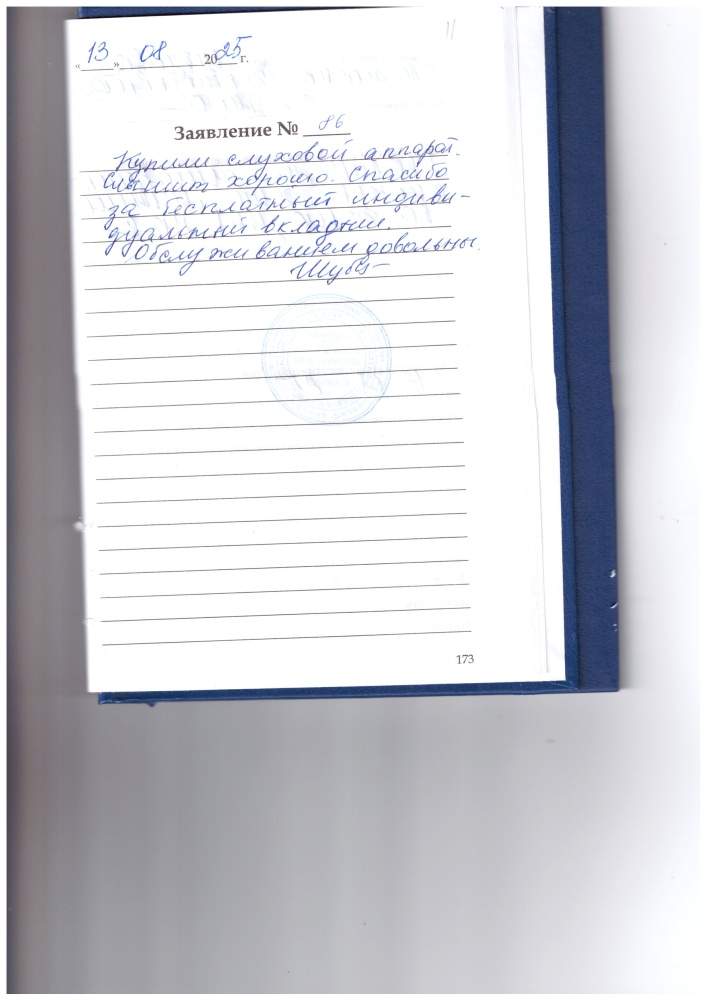 «13» 08 2025 г.
Заявление № 86
Купили слуховой аппарат.
Слышит хорошо. Спасибо
за бесплатный индиви-
дуальный вкладыш.
Обслуживанием довольны.
173